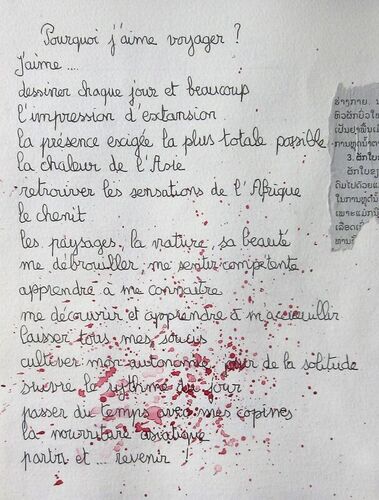 Pourquoi j'aime voyager ?
J'aime ....
dessiner chaque jour et beaucoup
l'impression d'extansion
la présence exigée la plus totale possible
la chaleur de l'Asie
retrouver les sensations de l'Afrique
le chenit
les paysages, la nature, sa beauté
me débrouiller, me sentir compétente
apprendre à me connaître
me découvrir et apprendre à m'accueillir
laisser tous mes soucis
cultiver mon autonomie, jouir de la solitude
suivre le rythme du jour
passer du temps avec mes copines
la nourriture asiatique
partir et ... revenir !
ຮ່າງກາຍ.
3. ຜັກໃບ